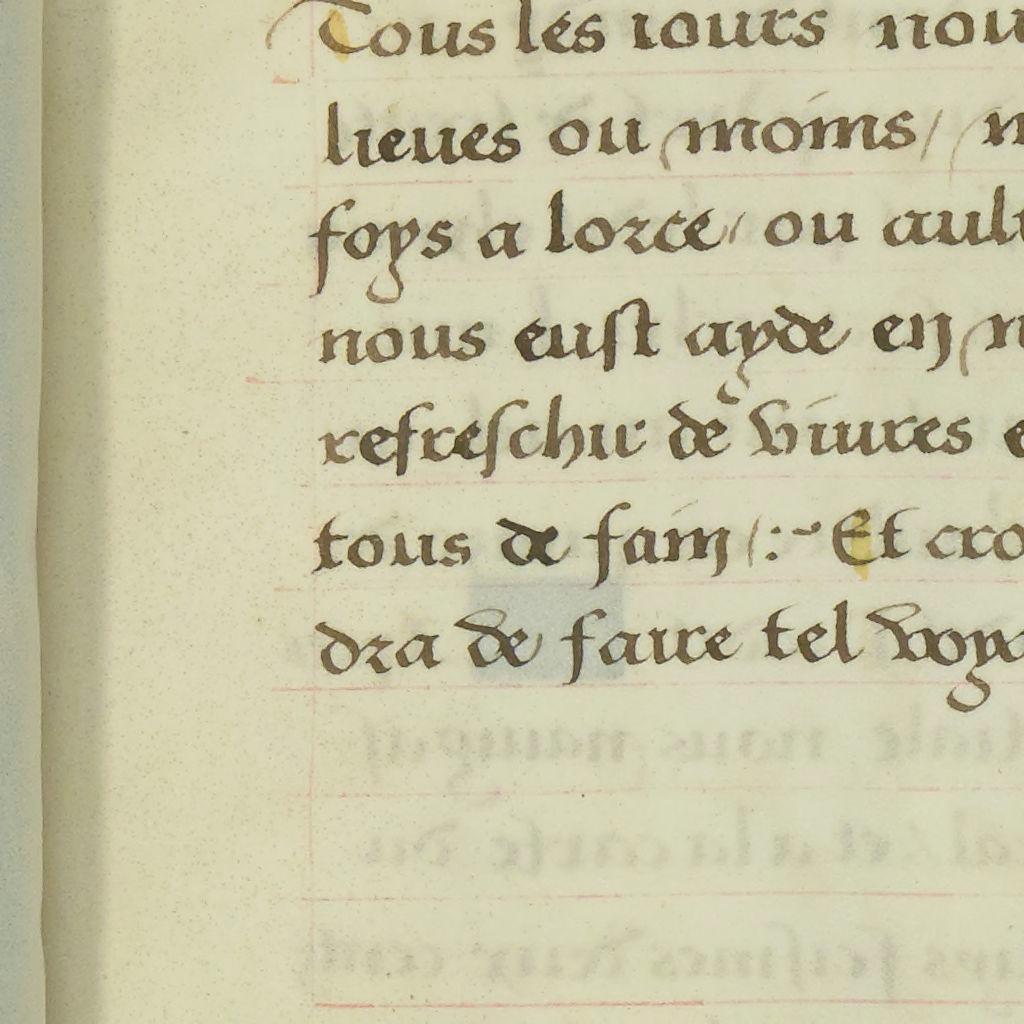 Tous les iours nou
lieues ou moins / m
foys a lorce / ou ault
nous eust ayde en n
refreschir de viures e
tous de faim /:~ Et cro
dra de faire tel voya